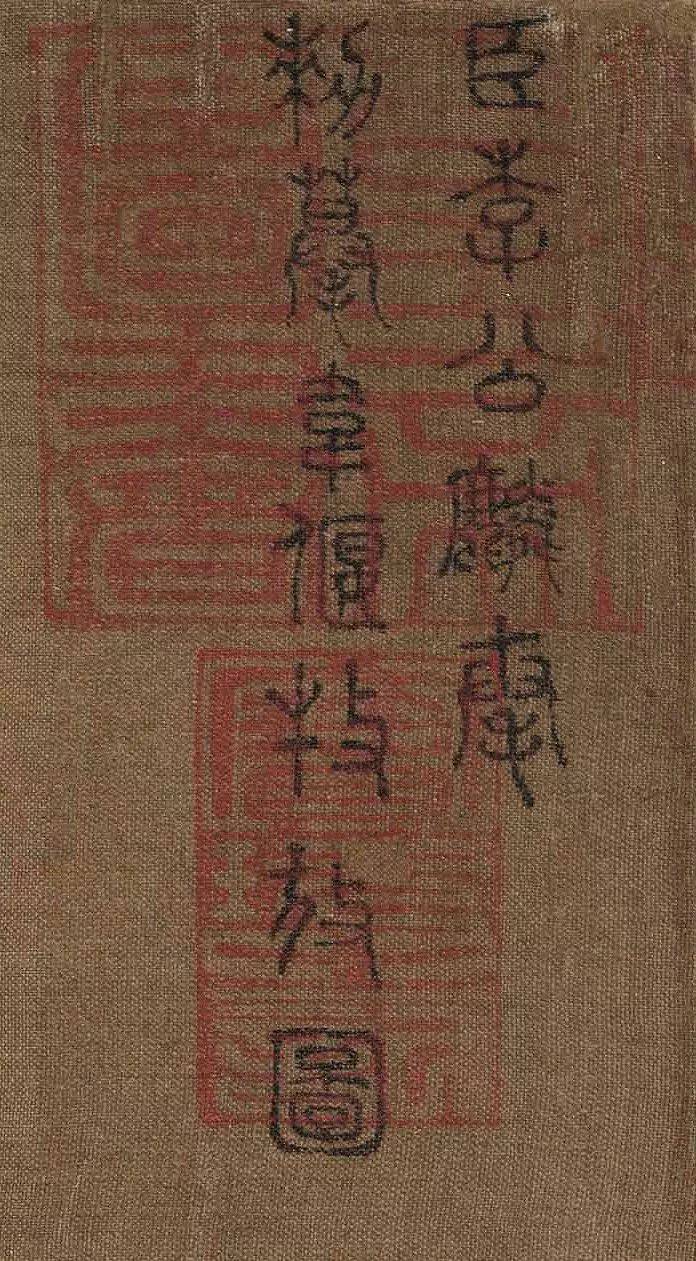 臣李公麟奉
勑摹韋偃牧放圖